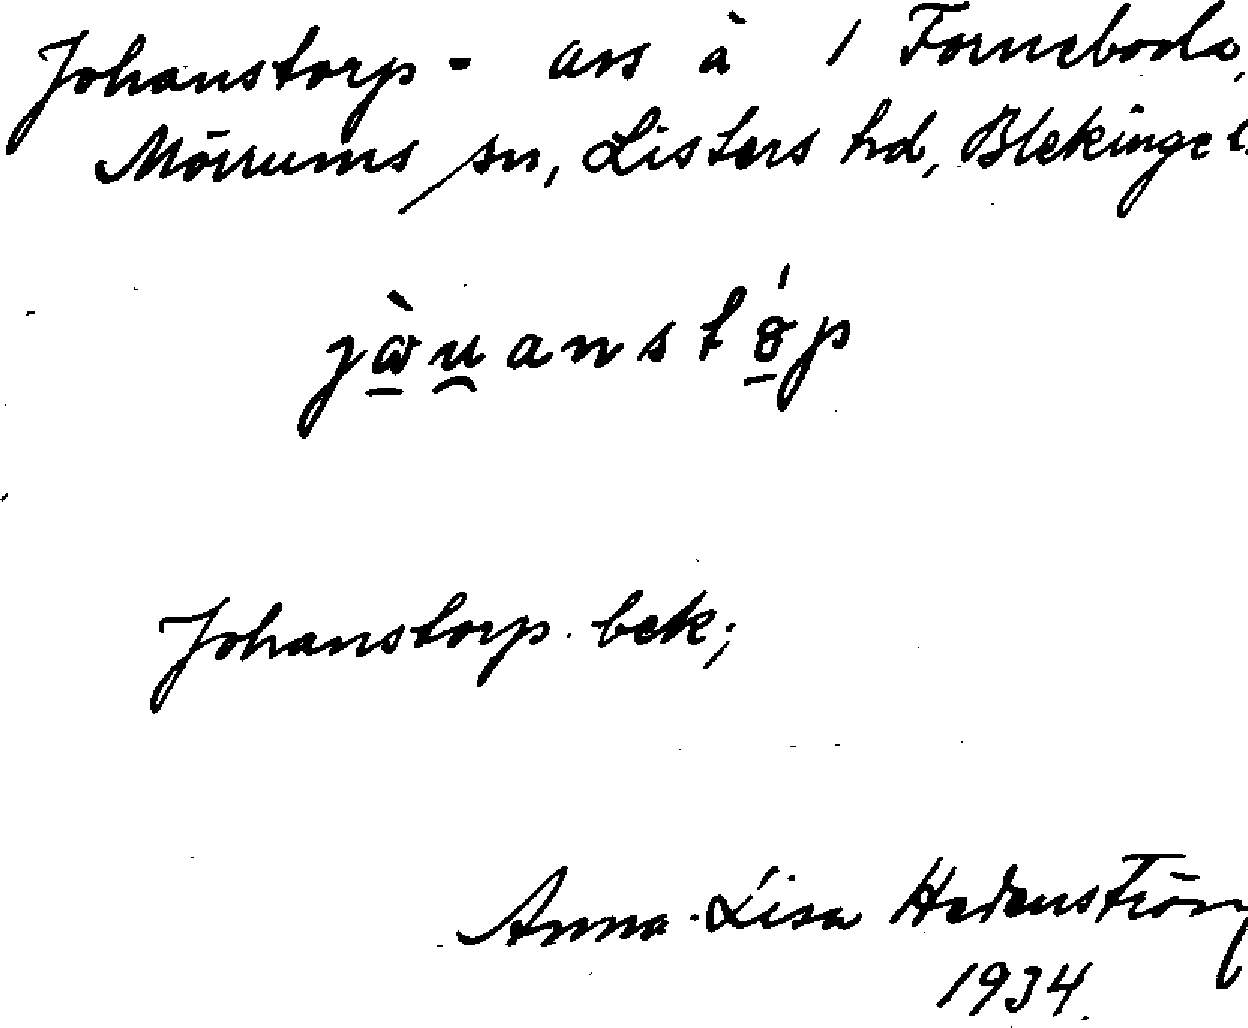 Johanstorp - avs å 1 Forneboda,
Mörrums sn, Listers hd, Blekinge l.
jὼ̱u̯anstó̱p
Johanstorp bek;
Anna-Lisa Hedenström
1934.